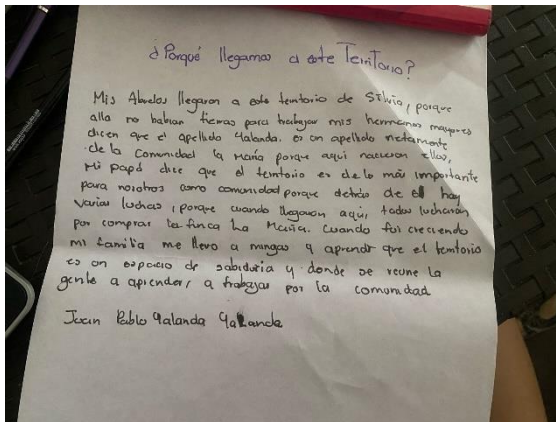 ¿Porqué llegamos a este Territorio?
Mis Abuelos llegaron a este territorio de Silvia, porque
alla no habian tierras para trabajar mis hermanos mayores
dicen que el apellido Yalanda. es un apellido netamente
de la Comunidad la María porque aqui nacieron ellos,
Mi papá dice que el territorio es de lo más importante
para nosotros como comunidad porque detrás de el hay
varias luchas, porque cuando llegaron aqui, todos lucharon
por comprar la finca La María. cuando fui creciendo
mi familia me llevo a mingas y aprendí que el territorio
es un espacio de sabiduria y donde se reune la
gente a aprender, a trabajar por la comunidad
Juan Pablo Yalanda Yalanda